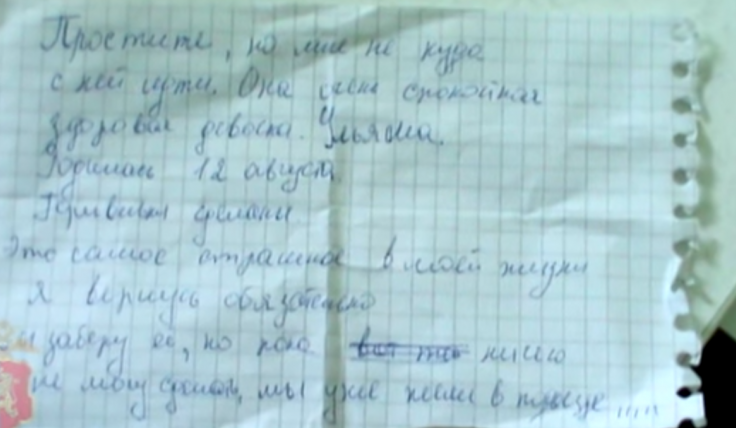 Простите, но мне не куда
с ней идти. Она очень спокойная
здоровая девочка. Ульяна.
Родилась 12 августа.
Прививки сделаны
Это самое страшное в моей жизни
Я вернусь обязательно
и заберу её, но пока ничего
не могу сделать, мы уже жили в